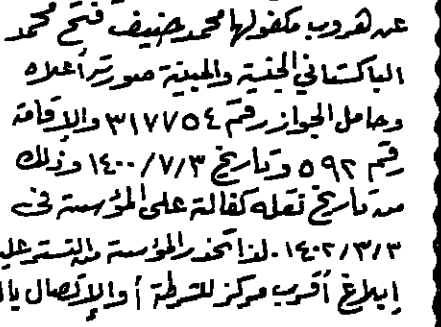 عن هروب مكفولها محمد حنيف فتح محمد
الباكستاني الجنسية والمبينة صورته أعلاه
وحامل الجواز رقم ٣١٧٧٥٤ والإقامة
رقم ٥٩٢ وتاريخ ١٤٠٠/٧/٣ وذلك
من تاريخ نقله كفالة على المؤسسة في
١٤٠٢/٣/٣. لذا تحذر المؤسسة من التستر عليه
إبلاغ أقرب مركز للشرطة أو الإتصال بال